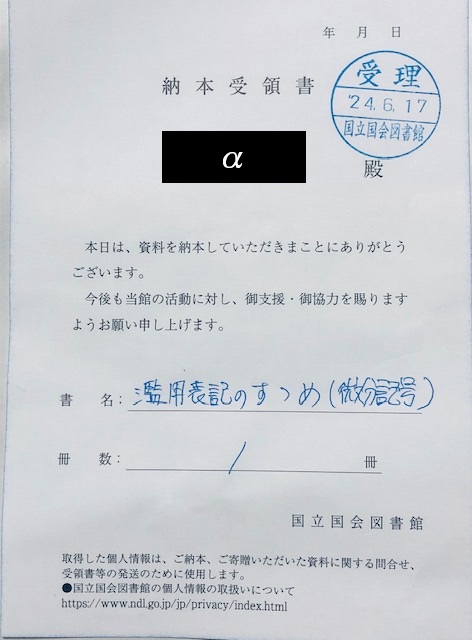 年 月 日
納本受領書
受理
'24.6.17
国立国会図書館
α
殿
本日は、資料を納本していただきまことにありがとう
ございます。
今後も当館の活動に対し、御支援・御協力を賜ります
ようお願い申し上げます。
書 名：濫用表記のすゝめ(微分記号)
冊 数：1 冊
国立国会図書館
取得した個人情報は、ご納本、ご寄贈いただいた資料に関する問合せ、
受領書等の発送のために使用します。
●国立国会図書館の個人情報の取扱いについて
https://www.ndl.go.jp/jp/privacy/index.html